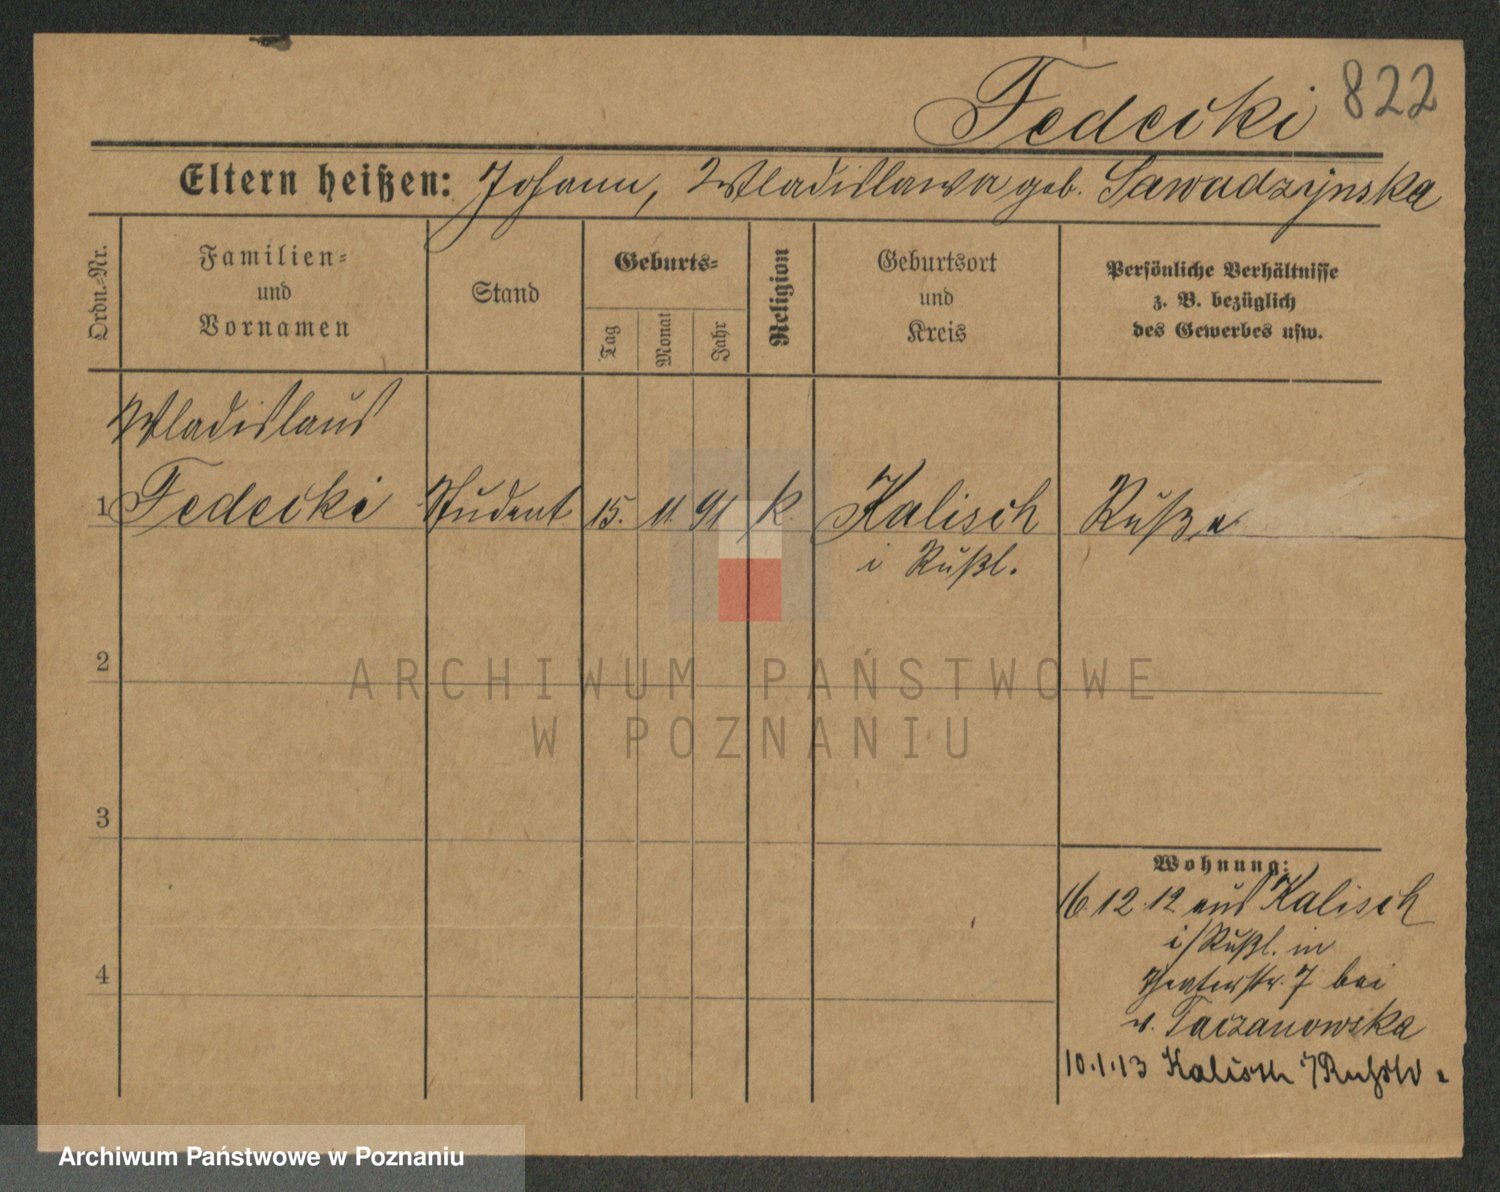 Fedecki 822
Eltern heißen: Johann, Wladislawa geb. Sawadzynska
Ordn.-Nr.
Familien-
und
Vornamen
Stand
Geburts-
Tag
Monat
Jahr
Religion
Geburtsort
und
Kreis
Persönliche Verhältnisse
z. B. bezüglich
des Gewerbes usw.
Wladislaus
1 Fedecki Student 15. 11. 91 k. Kalisch Russe
i Rußl.
2
ARCHIWUM PAŃSTWOWE
W POZNANIU
3
Wohnung:
16.12.12 aus Kalisch
i/Rußl. in
Theaterstr. 7 bei
v. Taczanowska
4
10.1.13 Kalisch i/Rußld
Archiwum Państwowe w Poznaniu